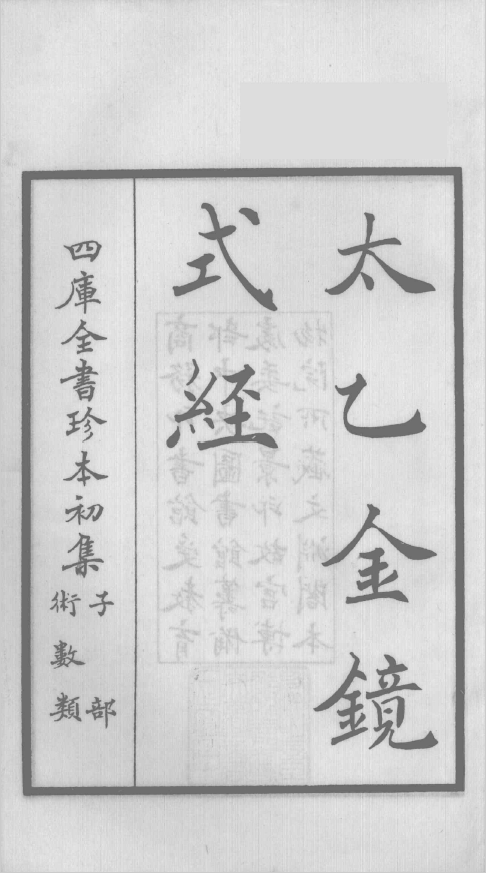 太乙金鏡
式経
四庫全書珍本初集
子部
術數類